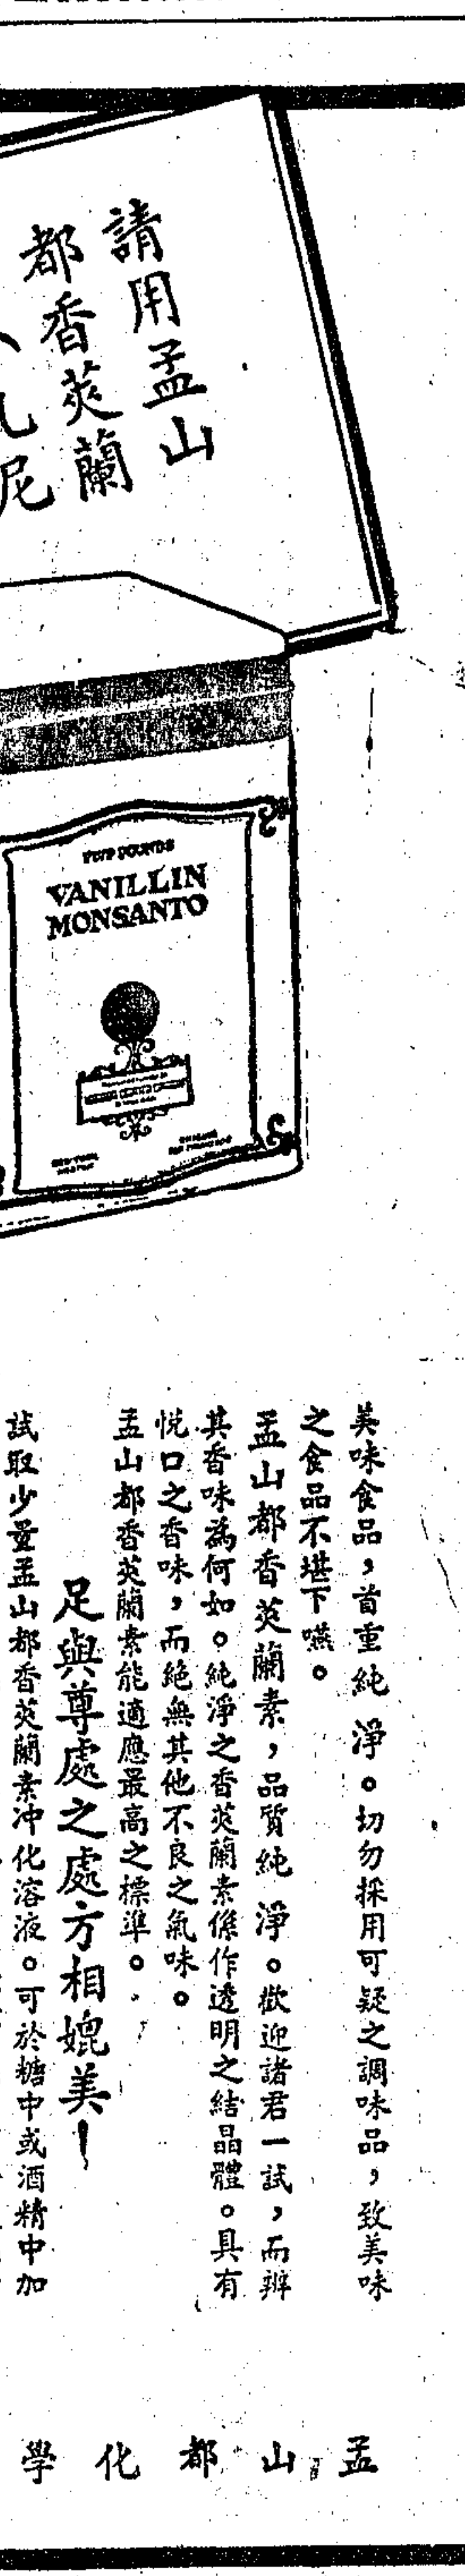 請用孟山
都香莢蘭
尼
VANILLIN
MONSANTO
美味食品，首重純淨。切勿採用可疑之調味品，致美味
之食品不堪下嚥。
孟山都香莢蘭素，品質純淨。歡迎諸君一試，而辨
其香味為何如。純淨之香莢蘭素係作透明之結晶體。具有
悅口之香味，而絕無其他不良之氣味。
孟山都香莢蘭素能適應最高之標準。
足與尊處之處方相媲美！
試取少量孟山都香莢蘭素冲化溶液。可於糖中或酒精中加
孟山都化學